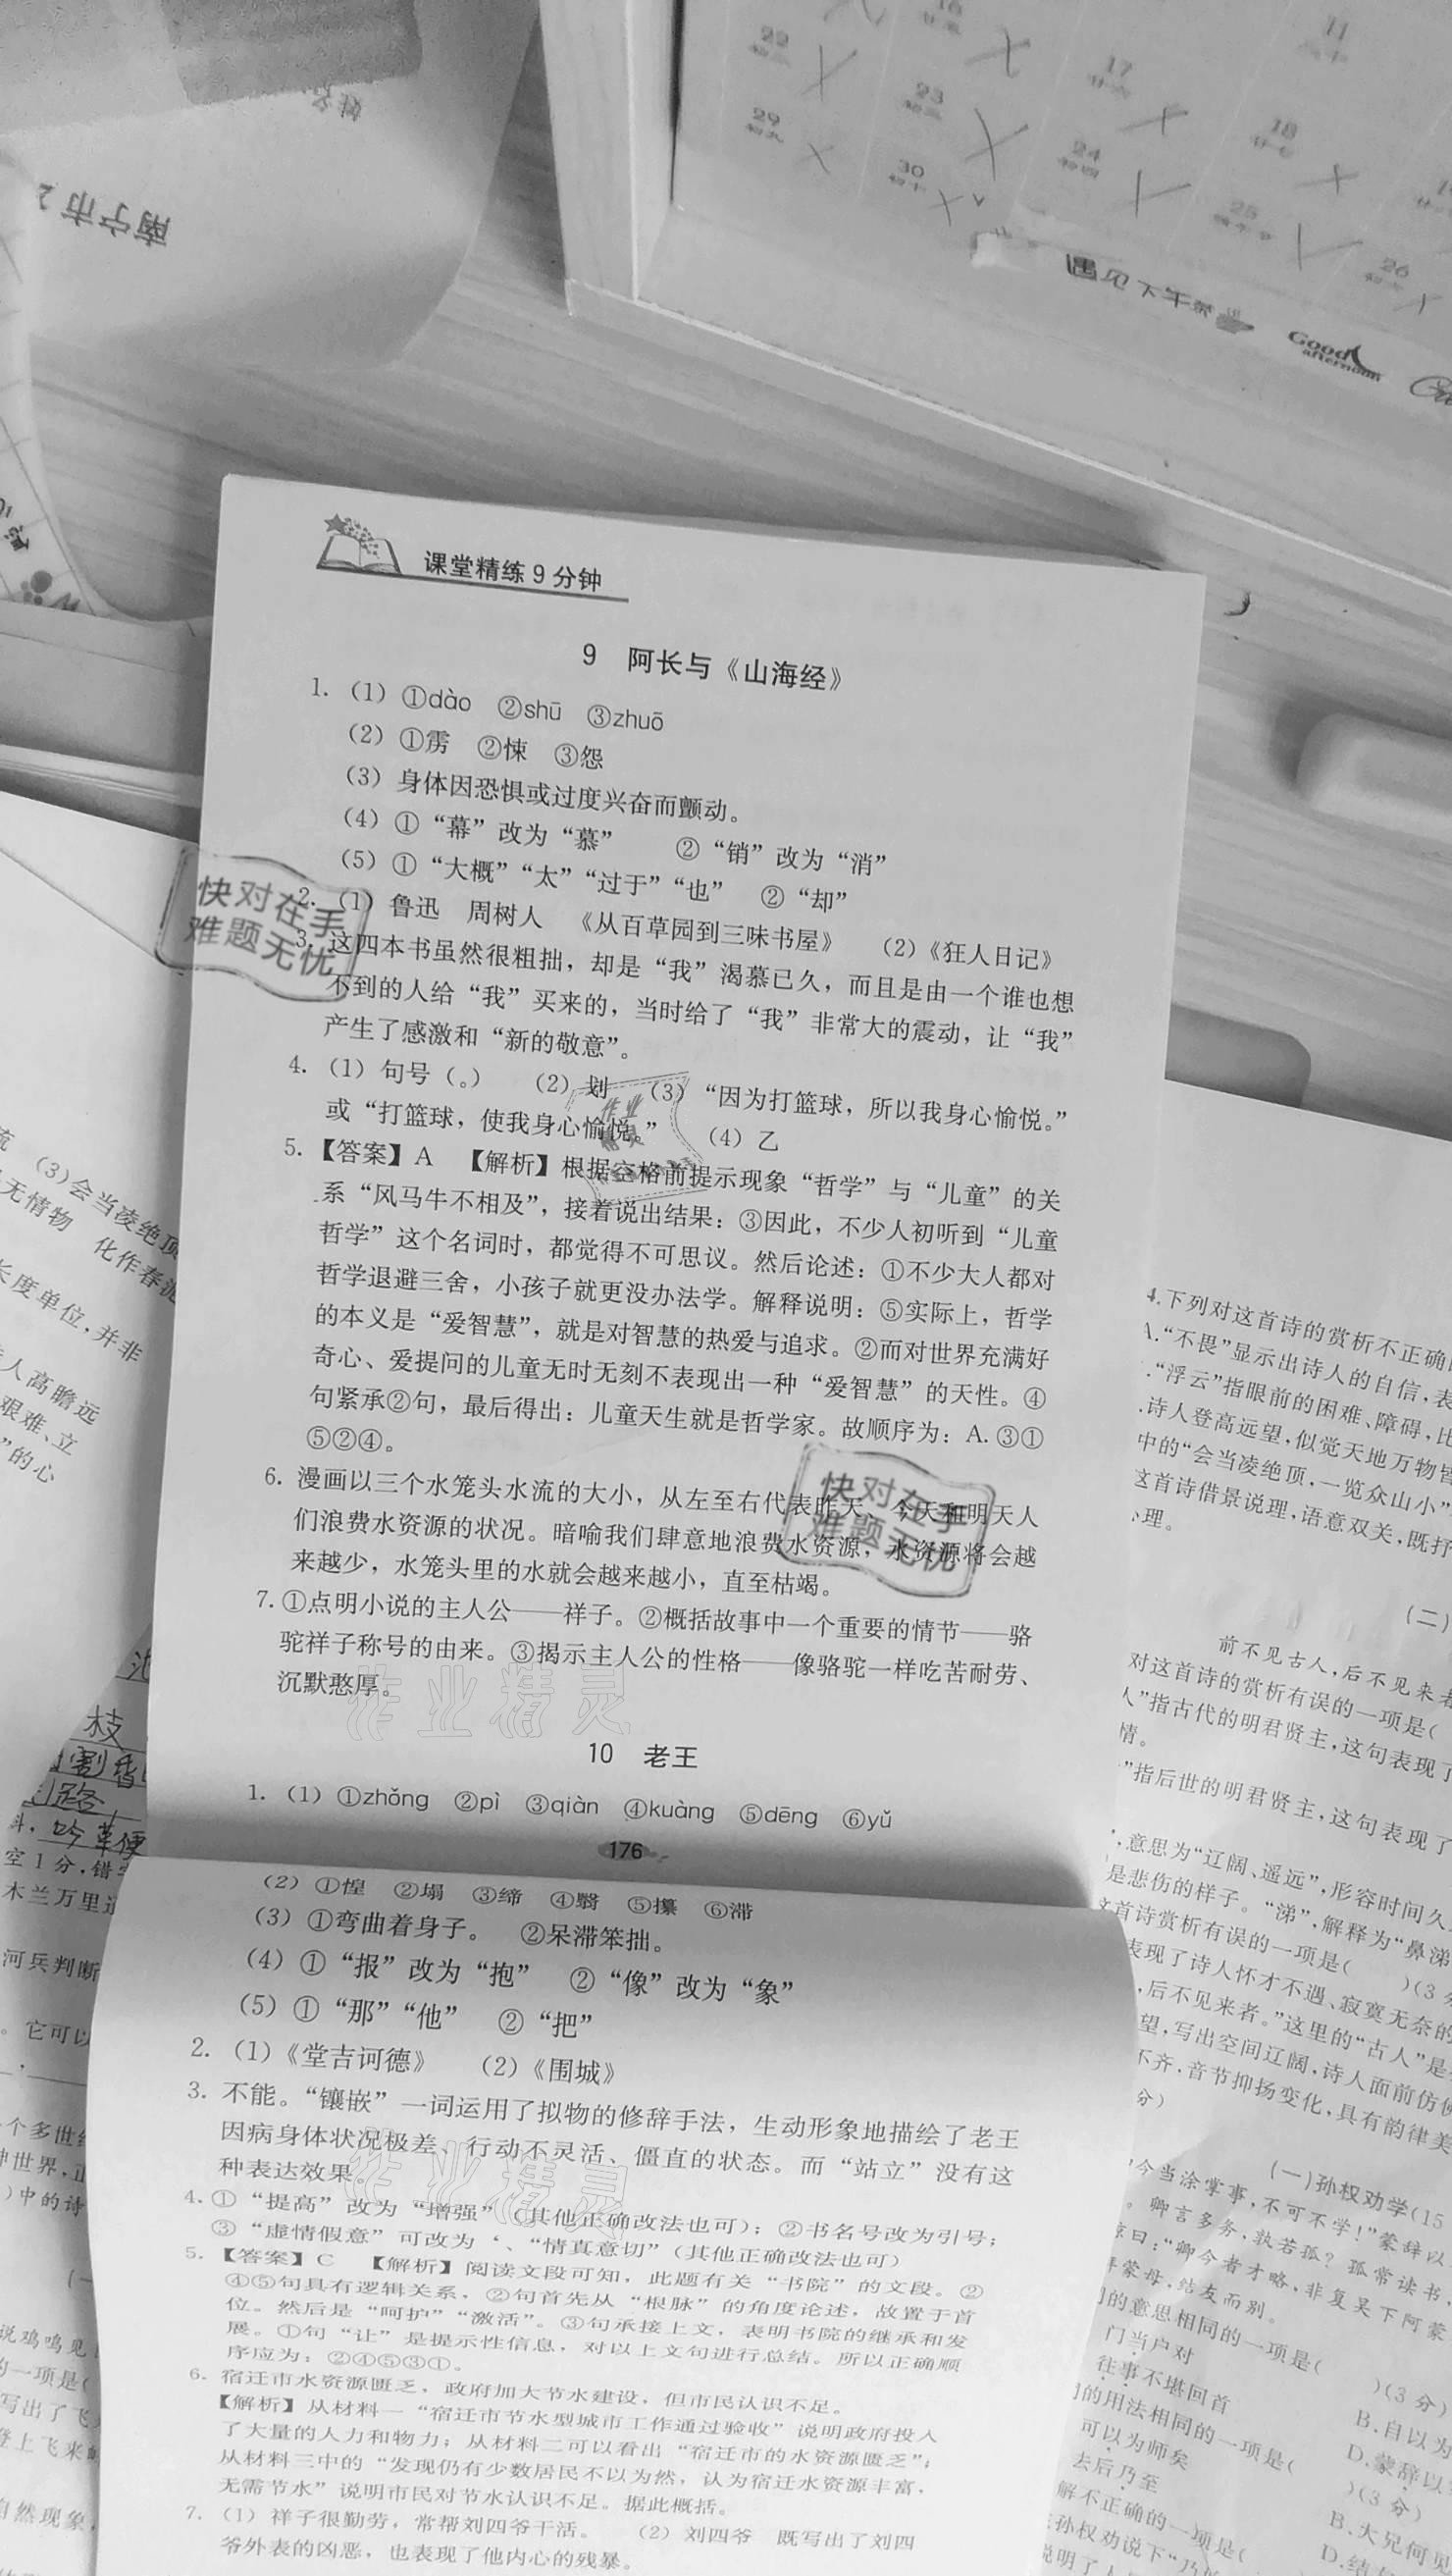 南宁市
姓名
16
11
22
17
23
18
29
24
30
25
26
遇见下午茶
Good
afternoon
课堂精练9分钟
9 阿长与《山海经》
1. (1) ①dào ②shū ③zhuō
(2) ①雳 ②悚 ③怨
(3) 身体因恐惧或过度兴奋而颤动。
(4) ①“幕”改为“慕” ②“销”改为“消”
(5) ①“大概”“太”“过于”“也” ②“却”
2. (1) 鲁迅 周树人 《从百草园到三味书屋》 (2)《狂人日记》
3. 这四本书虽然很粗拙，却是“我”渴慕已久，而且是由一个谁也想
不到的人给“我”买来的，当时给了“我”非常大的震动，让“我”
产生了感激和“新的敬意”。
4. (1) 句号（。） (2) 划 (3) “因为打篮球，所以我身心愉悦。”
或“打篮球，使我身心愉悦。” (4) 乙
5. 【答案】A 【解析】根据空格前提示现象“哲学”与“儿童”的关
系“风马牛不相及”，接着说出结果：③因此，不少人初听到“儿童
哲学”这个名词时，都觉得不可思议。然后论述：①不少大人都对
哲学退避三舍，小孩子就更没办法学。解释说明：⑤实际上，哲学
的本义是“爱智慧”，就是对智慧的热爱与追求。②而对世界充满好
奇心、爱提问的儿童无时无刻不表现出一种“爱智慧”的天性。④
句紧承②句，最后得出：儿童天生就是哲学家。故顺序为：A. ③①
⑤②④。
6. 漫画以三个水笼头水流的大小，从左至右代表昨天、今天和明天人
们浪费水资源的状况。暗喻我们肆意地浪费水资源，水资源将会越
来越少，水笼头里的水就会越来越小，直至枯竭。
7. ①点明小说的主人公——祥子。②概括故事中一个重要的情节——骆
驼祥子称号的由来。③揭示主人公的性格——像骆驼一样吃苦耐劳、
沉默憨厚。
10 老王
1. (1) ①zhǒng ②pì ③qiàn ④kuàng ⑤dēng ⑥yǔ
176
(2) ①惶 ②塌 ③缔 ④翳 ⑤攥 ⑥滞
(3) ①弯曲着身子。 ②呆滞笨拙。
(4) ①“报”改为“抱” ②“像”改为“象”
(5) ①“那”“他” ②“把”
2. (1)《堂吉诃德》 (2)《围城》
3. 不能。“镶嵌”一词运用了拟物的修辞手法，生动形象地描绘了老王
因病身体状况极差、行动不灵活、僵直的状态。而“站立”没有这
种表达效果。
4. ①“提高”改为“增强”（其他正确改法也可）；②书名号改为引号；
③“虚情假意”可改为“情真意切”（其他正确改法也可）
5. 【答案】C 【解析】阅读文段可知，此题有关“书院”的文段。②
④⑤句具有逻辑关系，②句首先从“根脉”的角度论述，故置于首
位。然后是“呵护”“激活”。③句承接上文，表明书院的继承和发
展。①句“让”是提示性信息，对以上文句进行总结。所以正确顺
序应为：②④⑤③①。
6. 宿迁市水资源匮乏，政府加大节水建设，但市民认识不足。
【解析】从材料一“宿迁市节水型城市工作通过验收”说明政府投入
了大量的人力和物力；从材料二可以看出“宿迁市的水资源匮乏”；
从材料三中的“发现仍有少数居民不以为然，认为宿迁水资源丰富，
无需节水”说明市民对节水认识不足。据此概括。
7. (1) 祥子很勤劳，常帮刘四爷干活。 (2) 刘四爷 既写出了刘四
爷外表的凶恶，也表现了他内心的残暴。
快对在手
难题无忧
快对在手
难题无忧
作业精灵
作业精灵
(3)会当凌绝顶
无情物 化作春泥
长度单位，并非
人高瞻远
艰难、立
”的心
枝
空1分，错
木兰万里
河兵判断
。它可以
个多世
神世界，正
)中的诗
说鸡鸣见
的一项是(
写出了飞
登上飞来
自然现象，
4.下列对这首诗的赏析不正确
A.“不畏”显示出诗人的自信，表
“浮云”指眼前的困难、障碍，比
诗人登高远望，似觉天地万物皆
中的“会当凌绝顶，一览众山小”
这首诗借景说理，语意双关，既抒
理。
(二)
前不见古人，后不见来者
对这首诗的赏析有误的一项是(
人”指古代的明君贤主，这句表现了
情。
”指后世的明君贤主，这句表现了
，意思为“辽阔、遥远”，形容时间久
是悲伤的样子。“涕”，解释为“鼻涕
这首诗赏析有误的一项是( )(3分
表现了诗人怀才不遇、寂寞无奈的
，后不见来者。”这里的“古人”是
望，写出空间辽阔，诗人面前仿佛
不齐，音节抑扬变化，具有韵律美
分)
(一)孙权劝学(15
今当涂掌事，不可不学！”蒙辞以
。卿言多务，孰若孤？孤常读书，
惊曰：“卿今者才略，非复吴下阿蒙
拜蒙母，结友而别。
的意思相同的一项是( )(3分)
门当户对
往事不堪回首
B.自以为
的用法相同的一项是( )(3分)
D.蒙辞以
可以为师矣
去后乃至
B.大兄何见
解不正确的一项是(
D.结
孙权劝说下“乃
说明了人